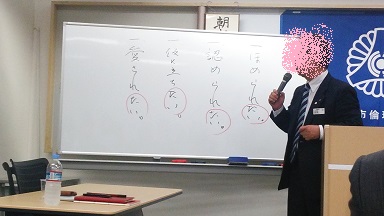 朝
一ほめられたい。
一認められたい。
一役立ちたい。
一愛られたい。
市倫理